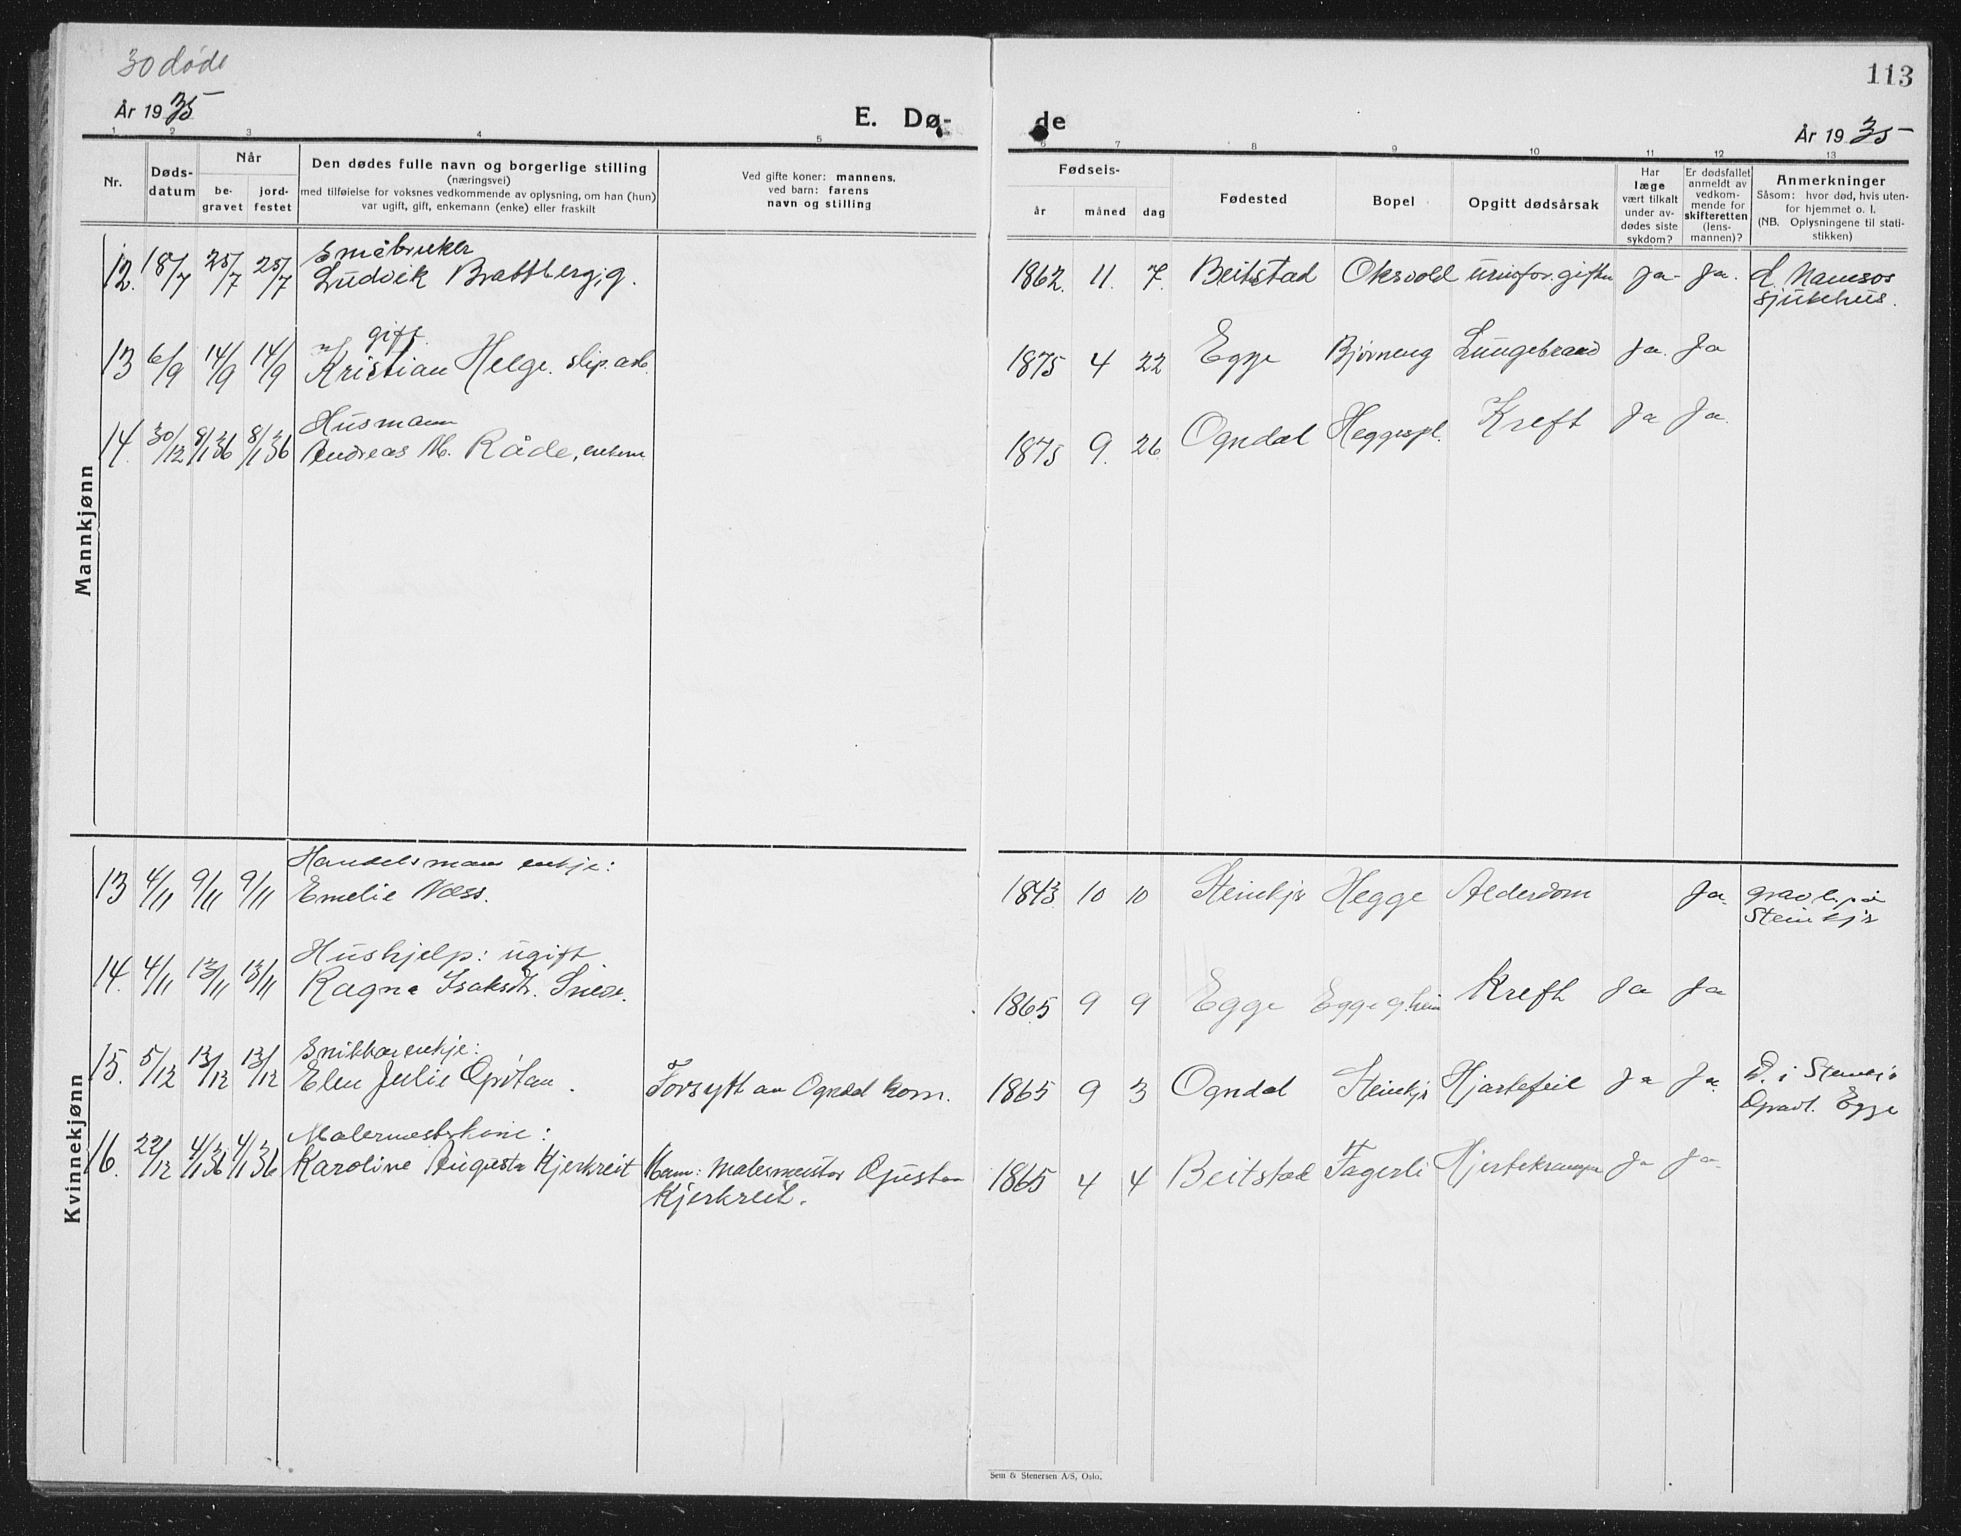 30 døde
År 1935
E. Dø-
de
113
År 1935
1 2 3 4 5 6 7 8 9 10 11 12 13
Nr.
Døds-
datum
Når
be-
gravet
jord-
festet
Den dødes fulle navn og borgerlige stilling
(næringsvei)
med tilføielse for voksnes vedkommende av oplysning, om han (hun)
var ugift, gift, enkemann (enke) eller fraskilt
Ved gifte koner: mannens.
ved barn: farens
navn og stilling
Fødsels-
år måned dag
Fødested
Bopel
Opgitt dødsårsak
Har
læge
vært tilkalt
under av-
dødes siste
sykdom?
Er dødsfallet
anmeldt av
vedkom-
mende for
skifteretten
(lens-
mannen)?
Anmerkninger
Såsom: hvor død, hvis uten-
for hjemmet o. l.
(NB. Oplysningene til stati-
stikken)
Mannkjønn
Småbruker
12. 18/7 25/7 25/7 Ludvik Brattberg, g. 1862. 11. 7. Beitstad Oksvold urinfor.giftn Ja Ja. d. Namsos
sjukehus.
gift.
13 6/9 14/9 14/9 Kristian Helge. slip.arb. 1875 4 22 Egge Bjørneng Lungebrand Ja. Ja
Husmann
14. 30/12 8/1 36 8/1 36 Andreas M. Råde, enkem 1875 9. 26 Ogndal Heggespl. Kreft Ja Ja.
Kvinnekjønn
Handelsmanns enkje:
13 4/11 9/11 9/11 Emelie Næss. 1843 10 10 Steinkjr Hegge Alderdom Ja gravl. på
Steinkjr
Hushjelp: ugift.
14. 4/11 13/11 13/11 Ragna Isaksdtr. 1865 9 9 Egge Egge g.heim Kreft Ja Ja
Snikkarenkje:
15. 5/12 13/12 13/12 Elen Julie Forsytt av Ogndal kom. 1865 9 3 Ogndal Steinkjr Hjartefeil Ja Ja. D. i Steinkjr
Gravl. Egge
Malermeistkone:
16. 22/12 4/1 36 4/1 36 Karoline Augusta Kjerkreit Mann: Malermeister Gustav
Kjerkreit. 1865 4 4 Beitstad Fagerli Hjertekrampe Ja Ja
Sem & Stenersen A/S, Oslo.